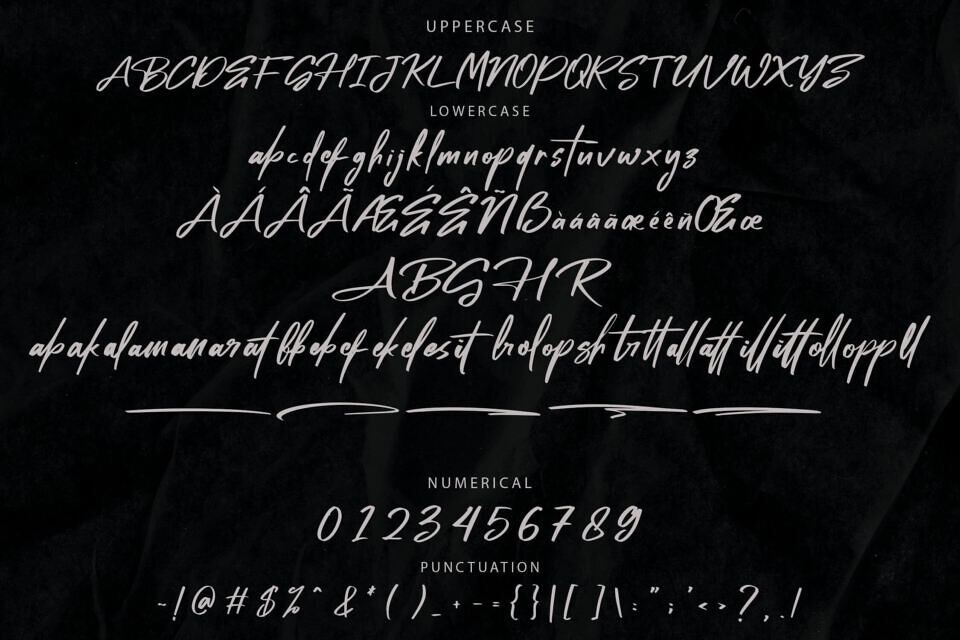 UPPERCASE
ABCDEFGHIJKLMNOPQRSTUVWXYZ
LOWERCASE
abcdefghijklmnopqrstuvwxyz
ÀÁÂÃÆÉÊÑßàáâãæéêñŒœ
ABGHR
abakalamanaratbbebefekelesit brolopshtrttallattillittollloppll
NUMERICAL
0123456789
PUNCTUATION
~!@#$%^&*()_+-={}|[]\:";'<>?,./